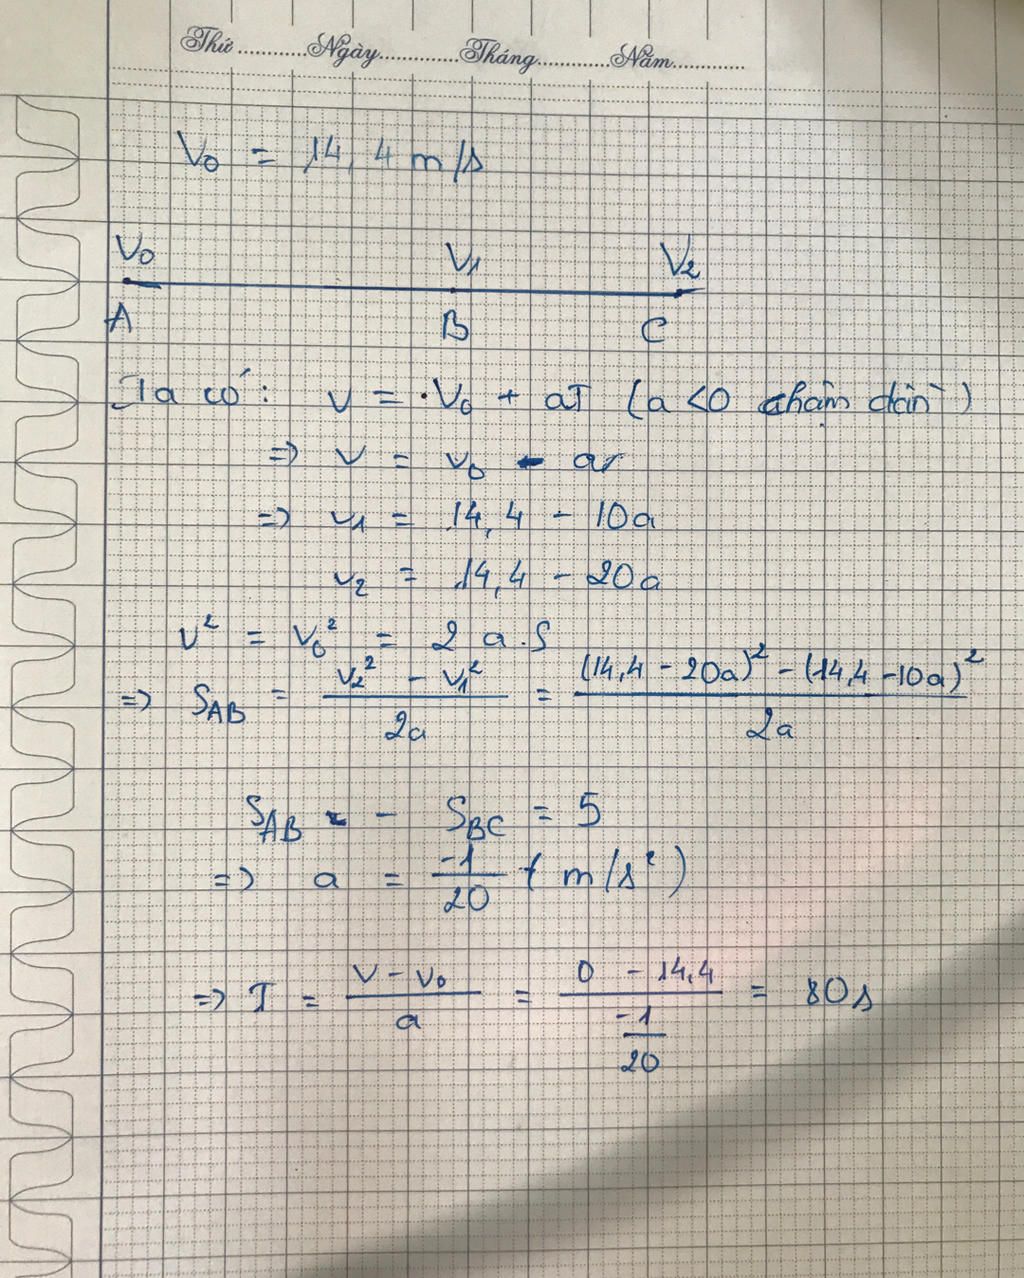 Thứ ............Ngày..............Tháng.............Năm.............
V₀ = 14,4 m/s
V₀ V₁ V₂
A B C
Ta có: v = V₀ + aT (a < 0 chậm dần)
=> v = v₀ - aT
=> v₁ = 14,4 - 10a
v₂ = 14,4 - 20a
v² = V₀² = 2 a.S
=> S_AB = (v₂² - v₁²)/2a = ((14,4 - 20a)² - (14,4 - 10a)²)/2a
S_AB - S_BC = 5
=> a = -1/20 (m/s²)
=> T = (v - v₀)/a = (0 - 14,4)/(-1/20) = 80s